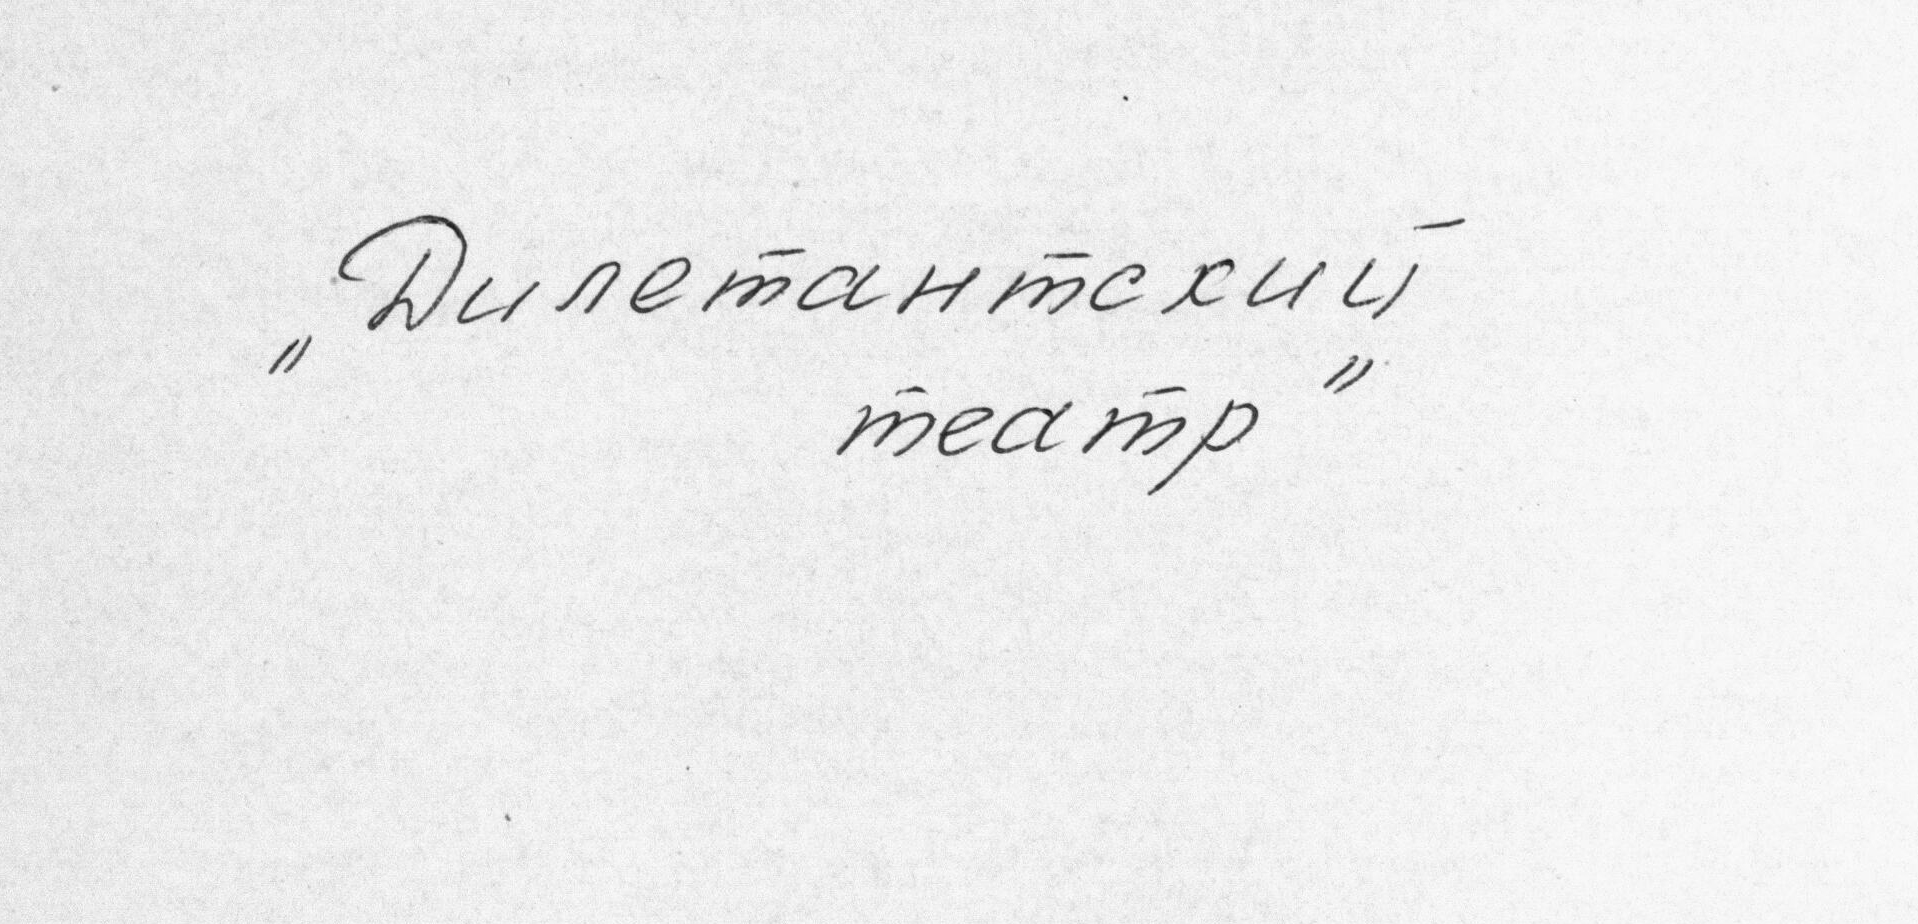 „Дилетантский
театр"